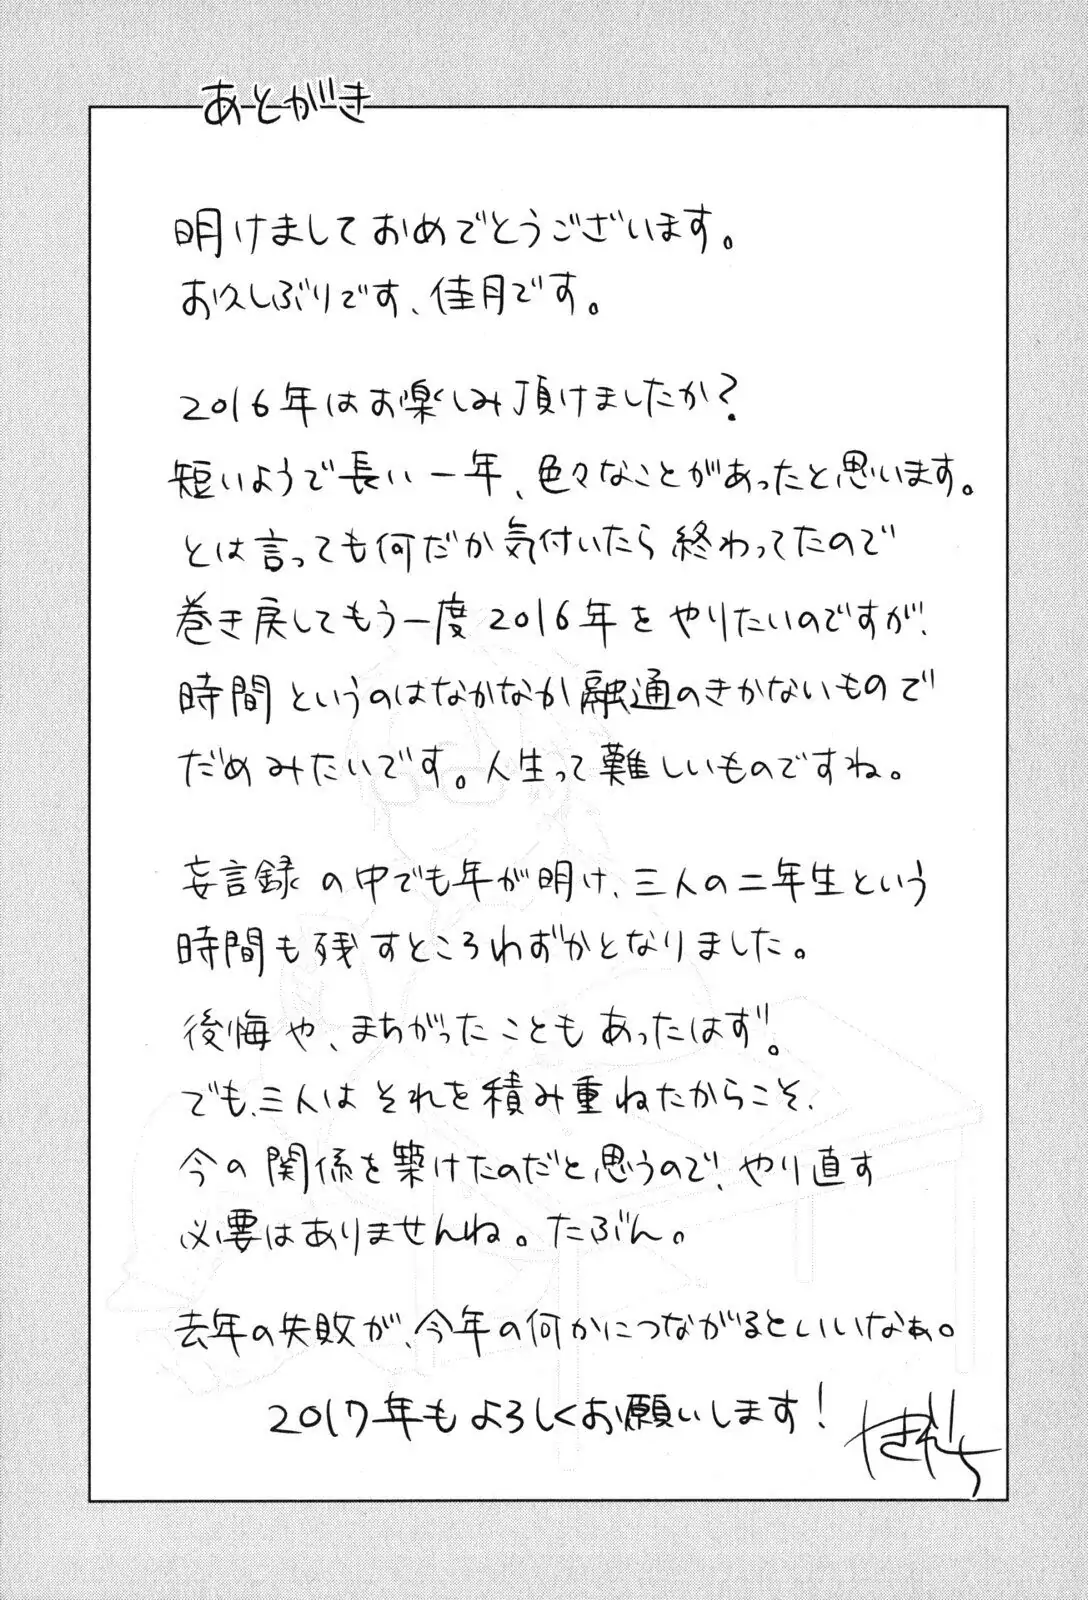 あとがき
明けましておめでとうございます。
お久しぶりです、佳月です。
2016年はお楽しみ頂けましたか？
短いようで長い一年、色々なことがあったと思います。
とは言っても何だか気付いたら終わってたので
巻き戻してもう一度2016年をやりたいのですが、
時間というのはなかなか融通のきかないもので
だめみたいです。人生って難しいものですね。
妄言録の中でも年が明け、三人の二年生という
時間も残すところわずかとなりました。
後悔や、まちがったこともあったはず。
でも、三人はそれを積み重ねたからこそ、
今の関係を築けたのだと思うので、やり直す
必要はありませんね。たぶん。
去年の失敗が、今年の何かにつながるといいなぁ。
2017年もよろしくお願いします！